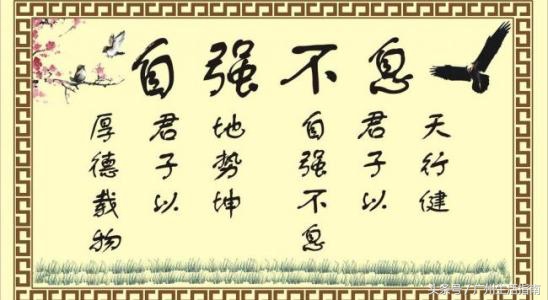 自强不息
天行健
君子以
自强不息
地势坤
君子以
厚德载物
头条号/广州生活指南